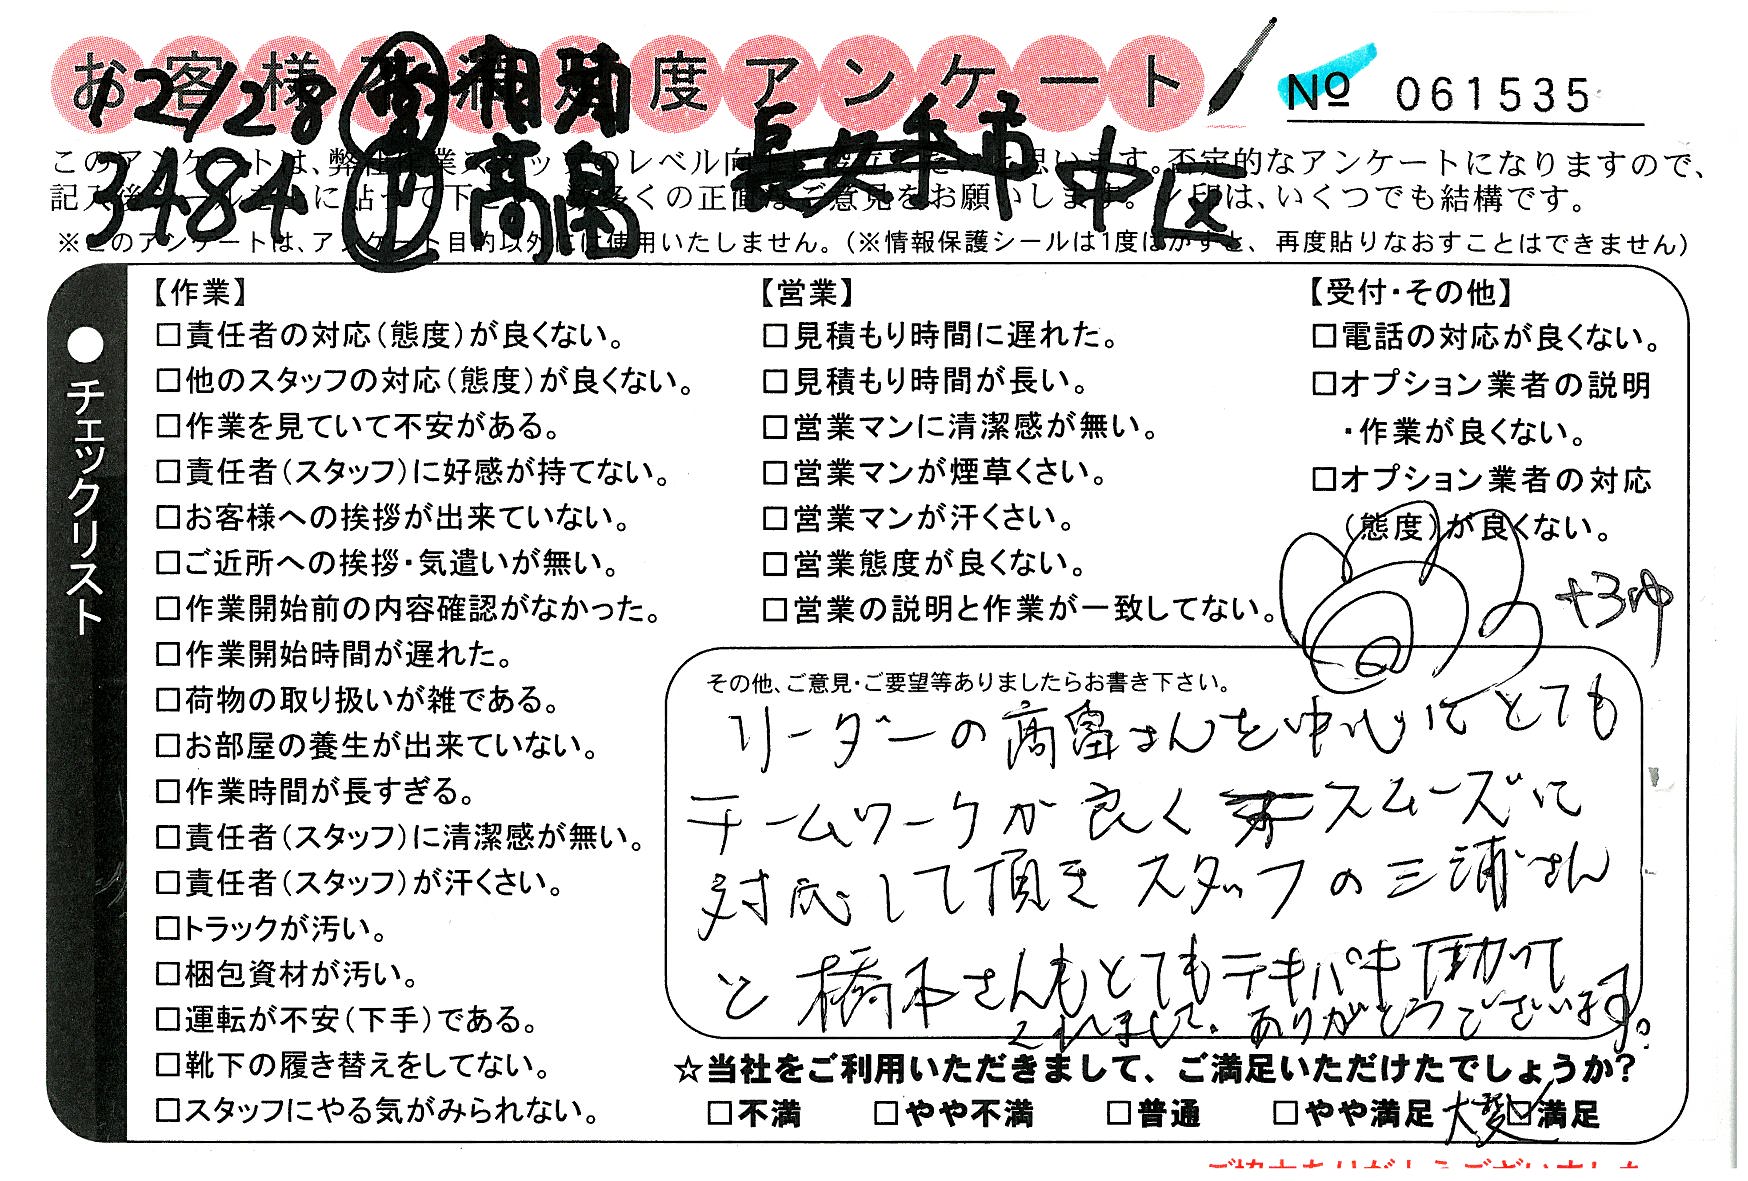 お客様 度アンケート
№ 061535
12/28 営 相浦
3484 高畠 中区
このアンケートは、弊社作業スタッフのレベル向 思います。否定的なアンケートになりますので、
記入後シールを に貼って下 多くの正直なご意見をお願いします。レ印は、いくつでも結構です。
※このアンケートは、アンケート目的以外には使用いたしません。（※情報保護シールは1度はがすと、再度貼りなおすことはできません）
●チェックリスト
【作業】
□責任者の対応（態度）が良くない。
□他のスタッフの対応（態度）が良くない。
□作業を見ていて不安がある。
□責任者（スタッフ）に好感が持てない。
□お客様への挨拶が出来ていない。
□ご近所への挨拶・気遣いが無い。
□作業開始前の内容確認がなかった。
□作業開始時間が遅れた。
□荷物の取り扱いが雑である。
□お部屋の養生が出来ていない。
□作業時間が長すぎる。
□責任者（スタッフ）に清潔感が無い。
□責任者（スタッフ）が汗くさい。
□トラックが汚い。
□梱包資材が汚い。
□運転が不安（下手）である。
□靴下の履き替えをしてない。
□スタッフにやる気がみられない。
【営業】
□見積もり時間に遅れた。
□見積もり時間が長い。
□営業マンに清潔感が無い。
□営業マンが煙草くさい。
□営業マンが汗くさい。
□営業態度が良くない。
□営業の説明と作業が一致してない。
【受付・その他】
□電話の対応が良くない。
□オプション業者の説明
・作業が良くない。
□オプション業者の対応
（態度）が良くない。
その他、ご意見・ご要望等ありましたらお書き下さい。
リーダーの高畠さんを中心にとても
チームワークが良く スムーズに
対応して頂き スタッフの三浦さん
と橋本さんもとてもテキパキ動いて
くれまして、ありがとうございます。
☆当社をご利用いただきまして、ご満足いただけたでしょうか？
□不満 □やや不満 □普通 □やや満足 大変☑満足
ご協力ありがとうございました